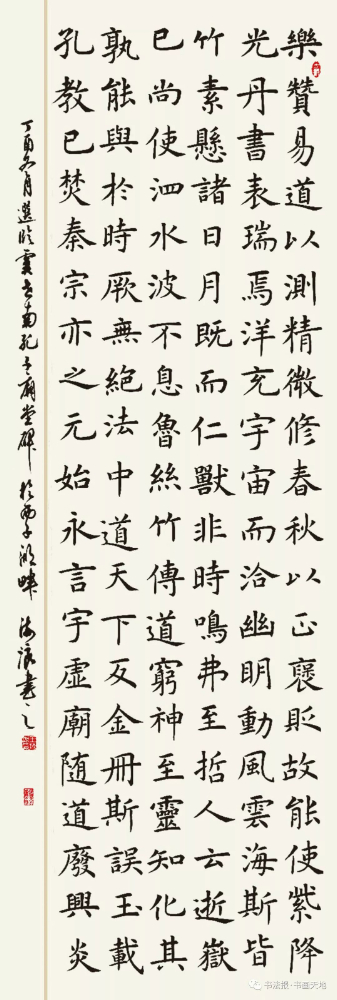 樂贊易道以測精微修春秋以正褒貶故能使紫降
光丹書表瑞焉洋充宇宙而洽幽明動風雲海斯皆
竹素懸諸日月既而仁獸非時鳴弗至哲人云逝嶽
已尚使泗水波不息魯絲竹傳道窮神至靈知化其
孰能與於時厥無絕法中道天下反金冊斯誤玉載
孔教已焚秦宗亦之元始永言宇虛廟随道廢興炎
丁酉冬月選臨虞世南孔子廟堂碑於西子湖畔書之
书法报·书画天地